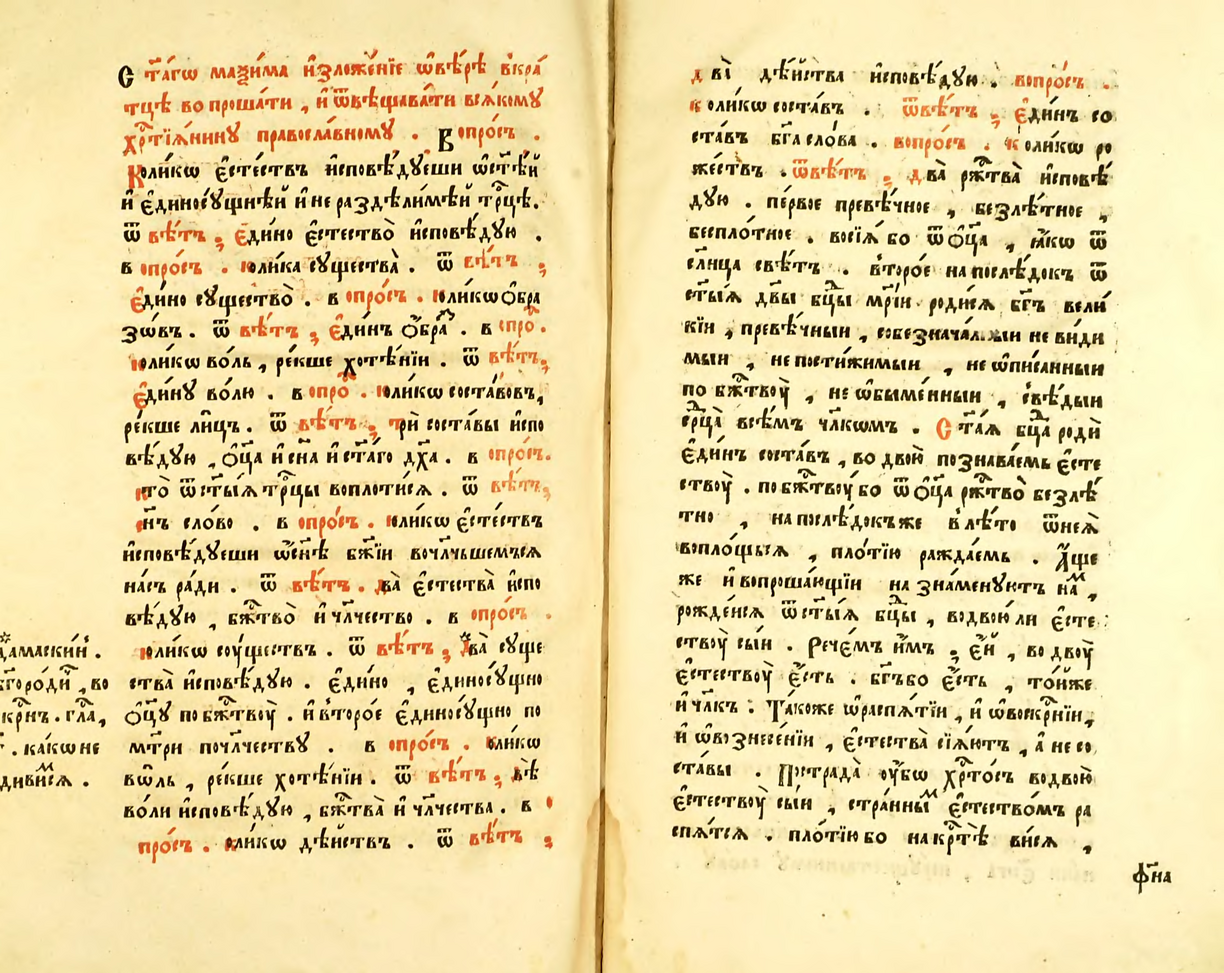 С та́гѡ маѯи́ма и҆зложе́нїе ѡ҆вѣ́рѣ вкра́
тцѣ вопроша́ти , и҆ ѿвѣщава́ти всѧ́кому
хрⷭ҇тїѧ́нинꙋ правосла́вномꙋ . Вопро́съ .
Ко́ликѡ є҆сте́ствъ и҆сповѣ́дꙋеши ѡ҆ст҃ѣ́й
и҆ є҆диносꙋ́щнѣй и҆ нераздѣли́мѣй трⷪ҇цѣ.
ѿвѣ́тъ ; є҆ди́но є҆стество̀ и҆сповѣ́дꙋю .
вопро́съ . коли́ка сꙋщества̀ . ѿвѣ́тъ ;
є҆ди́но сꙋщество̀ . вопро́съ . коли́кѡ ѻ҆бра
зѡ́въ . ѿвѣ́тъ ; є҆ди́нъ ѻ҆́браⷥ . вопро́ⷭ .
коли́кѡ во́ль , ре́кше хотѣ́нїи . ѿвѣ́тъ;
є҆ди́нꙋ во́лю . вопроⷭ . коли́кѡ соста́вовъ,
ре́кше ли́цъ . ѿвѣ́тъ ; трѝ соста́вы и҆спо
вѣ́дꙋю , ѻ҆ц҃а̀ и҆ сн҃а и҆ ст҃а́го дх҃а . вопро́съ.
кто̀ ѿ ст҃ы́ѧ трⷪ҇цы воплоти́сѧ . ѿвѣ́тъ;
сн҃ъ сло́во . вопро́съ . коли́кѡ є҆сте́ствъ
и҆сповѣ́дꙋеши ѡ҆сн҃ѣ бж҃їи вочл҃чьшемъсѧ
на́съ ра́ди . ѿвѣ́тъ . два̀ є҆стества̀ и҆спо
вѣ́дꙋю , бжⷭ҇тво̀ и҆ чл҃чество . вопро́съ .
коли́кѡ соꙋ́ществъ . ѿвѣ́тъ ; * два̀ сꙋще
ства̀ и҆сповѣ́дꙋю . є҆ди́но , є҆диносꙋ́щно
ѻ҆ц҃ꙋ̀ по бжⷭ҇твоу̀ . и҆ второ́е є҆диносꙋ́щно по
мт҃ри по чл҃честву . вопро́съ . коли́кѡ
вѡ́ль , ре́кше хотѣ́нїи . ѿвѣ́тъ ; двѣ̀
во́ли и҆сповѣ́дꙋю , бжⷭ҇тва̀ и҆ чл҃чества . во
про́съ . коли́кѡ дѣ́йствъ . ѿвѣ́тъ ;
*
дамаски́й .
во
гл҃а,
. ка́кѡ не
диви́мⷨсѧ .
два̀ дѣ́йства и҆сповѣ́дꙋю . вопро́съ .
коли́кѡ соста́въ . ѿвѣ́тъ ; є҆ди́нъ со
ста́въ бг҃а сло́ва . вопро́съ . коли́кѡ ро
же́ствъ . ѿвѣ́тъ ; два̀ ржⷭ҇тва̀ и҆сповѣ́
дꙋю . пе́рвое превѣ́чное , безлѣ́тное ,
бесплотное . восїѧ́ бо ѿ ѻ҆ц҃а̀ , ꙗ҆́кѡ ѿ
сл҃нца свѣ́тъ . второ́е на послѣ́докъ ѿ
ст҃ы́ѧ дв҃ы бцⷣы мр҃і́и роди́сѧ бг҃ъ вели́
кїи , превѣ́чныи , собезнача́льныи неви́ди
мыи , непостижи́мыи , неѡ҆пи́санныи
по бжⷭ҇твоу̀ , неѡ҆быме́нныи , свѣ́дыи
срⷣца̀ всѣ́мъ чл҃кѡмъ . Ст҃а́ѧ бцⷣа родѝ
є҆ди́нъ соста́въ , во двою̀ познава́емь є҆сте
ствоу̀ . по бжⷭ҇твоу́ бо ѿ ѻ҆ц҃а̀ ржⷭ҇тво̀ безлѣ́
тно , на послѣ́докъ же в лѣ́то ѿ неѧ̀
вопло́щьсѧ , пло́тїю ражда́емь . А҆́ще
же и҆ вопроша́ющїи назна́менꙋютъ наⷨ ,
рожде́исѧ ѿ ст҃ы́ѧ бцⷣы , во двою́ ли є҆сте
ствоу̀ сы́и . Рече́мъ и҆̀мъ ; є҆́й , во двоу̀
є҆стествоу̀ є҆́сть . бг҃ъ бо є҆́сть , то́йже
и҆ чл҃къ . Та́коже ѡ҆ распѧ́тїи , и҆ ѡ҆ воскрⷭ҇нїи,
и҆ ѡ҆ вознесе́нїи , є҆стества̀ сїѧ́ютъ , а҆ не со
ста́вы . Пострада̀ ᲂу҆́бѡ хрⷭ҇то́съ во двою̀
є҆стествоу̀ сы́и , стра́нныⷨ є҆стество́мъ ра
спѧ́тсѧ . пло́тїю бо на крⷭ҇тѣ̀ ви́сѧ ,
ѳн҃а